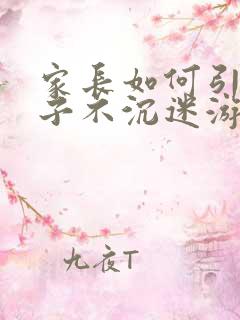 家長如何引
子不沉迷游
九夜T